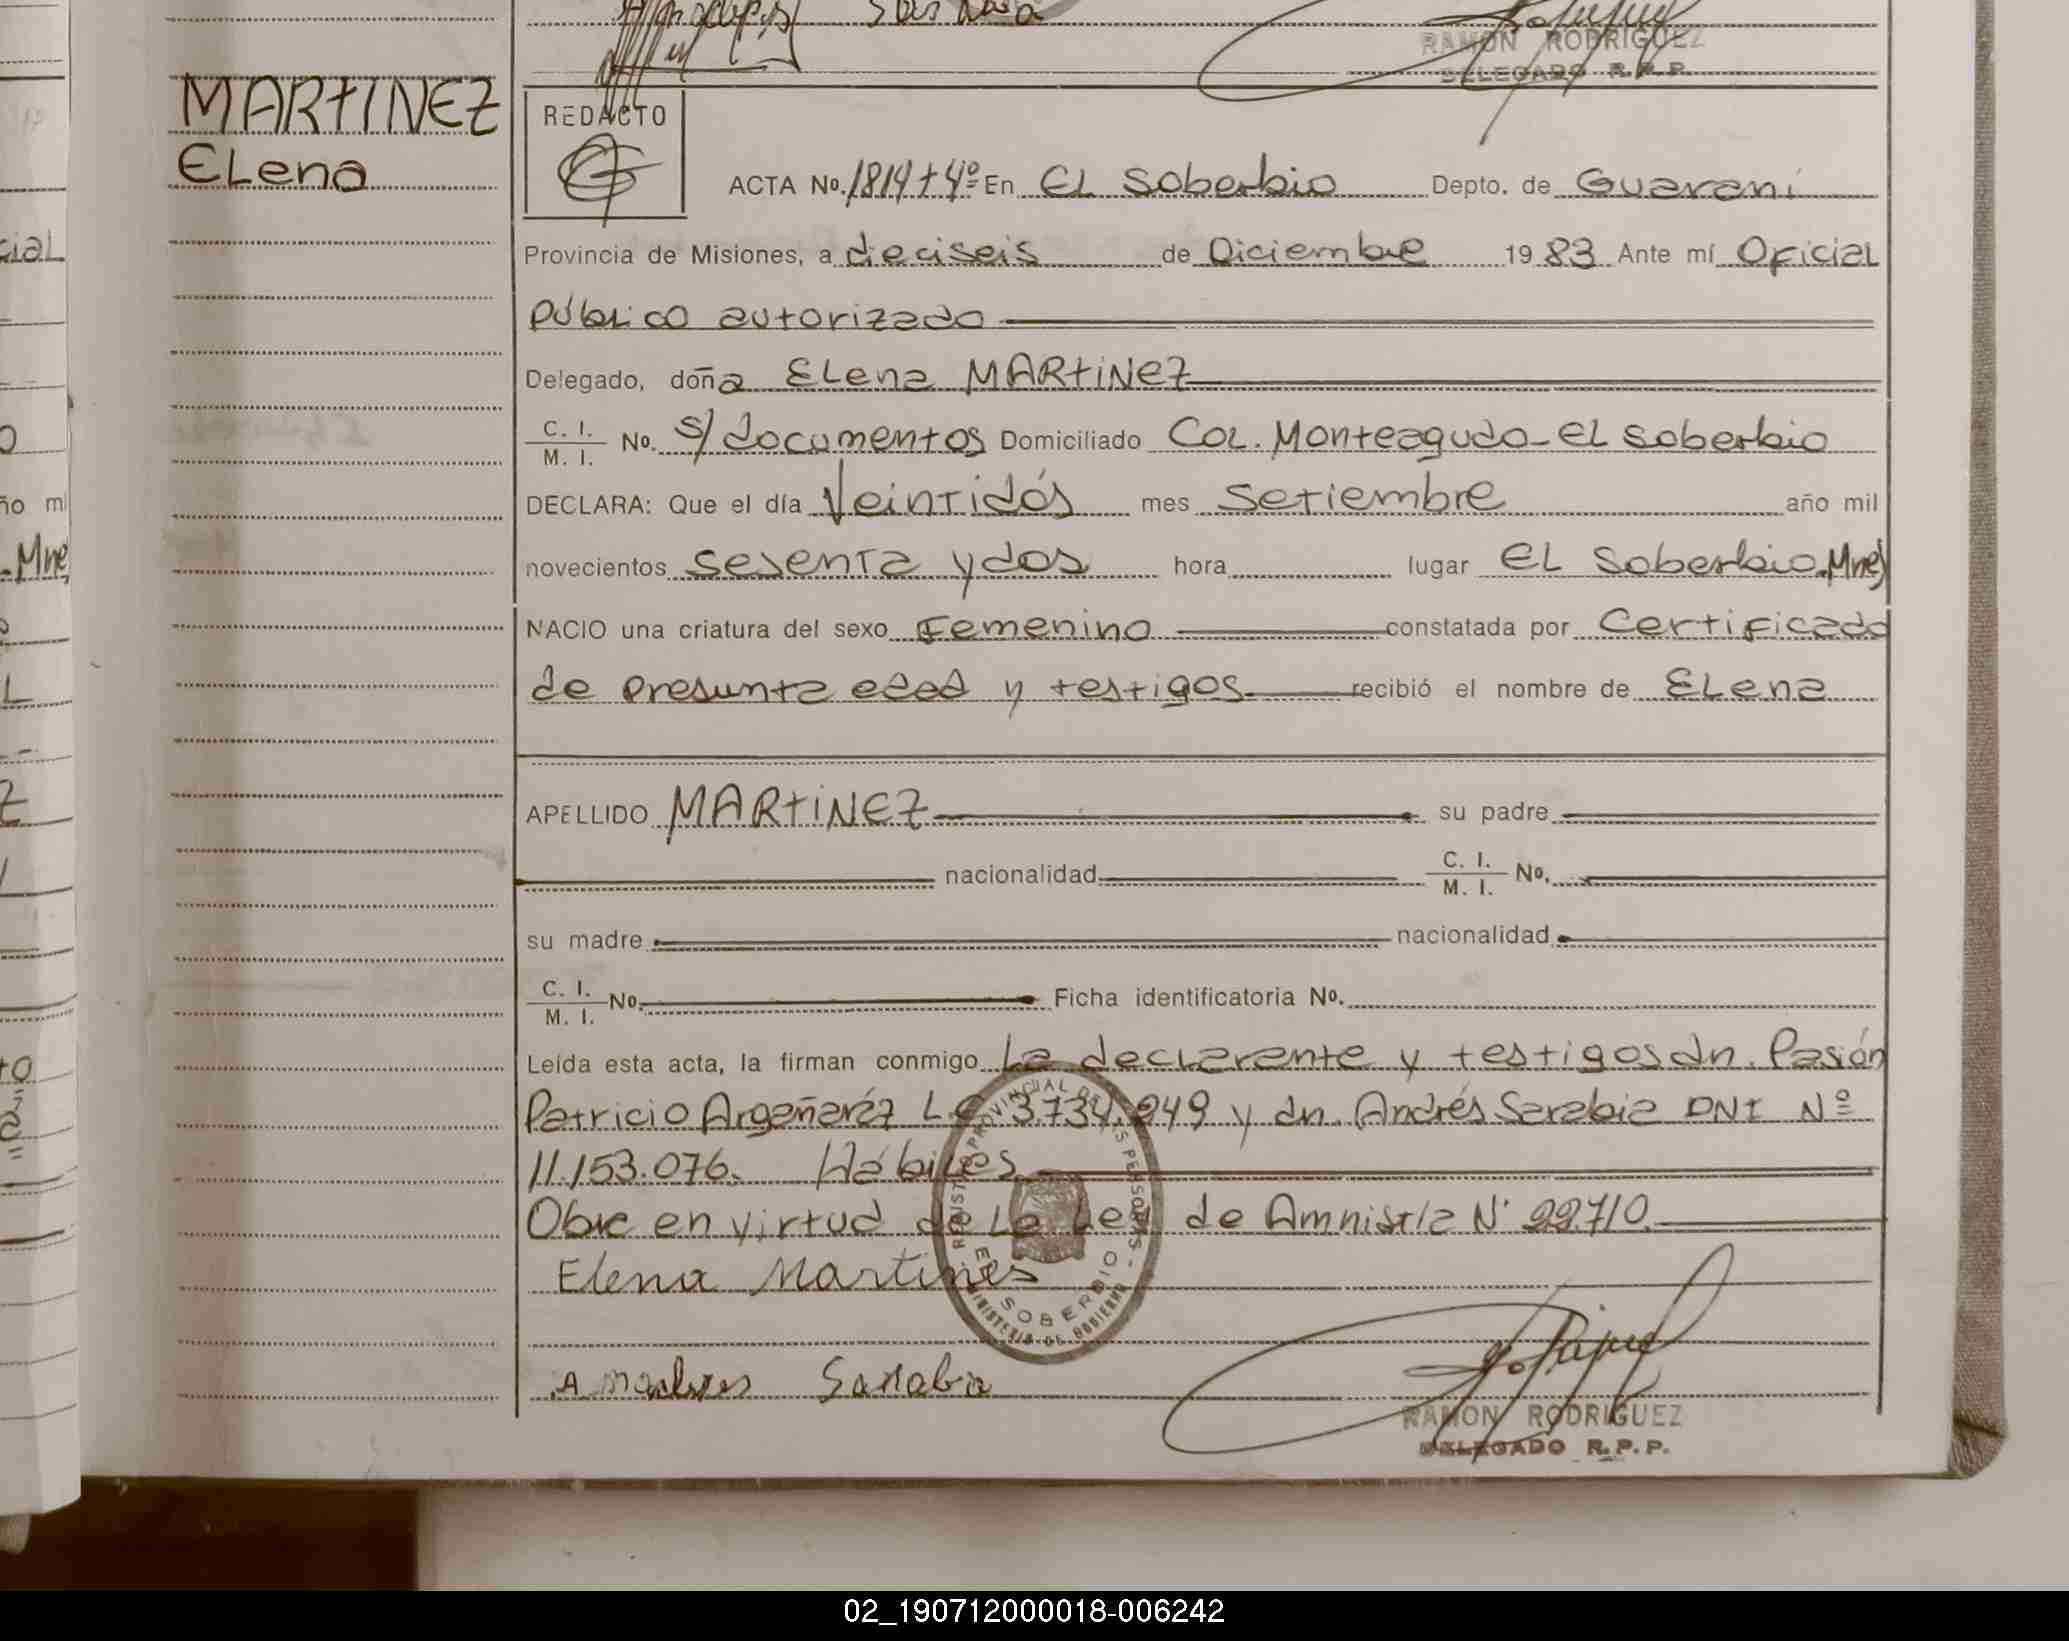 RAMON RODRIGUEZ
DELEGADO R.P.P.
MARTINEZ
ELena
REDACTO
ACTA No. 1814 + 4º En EL Soberbio Depto. de Guarani
Provincia de Misiones, a dieciseis de Diciembre 1983 Ante mí Oficial
Público autorizado
Delegado, doña ELena MARTiNeZ
C. I. / M. I. No. s/documentos Domiciliado CoL. Monteagudo - eL Soberbio
DECLARA: Que el día Veintidós mes Setiembre año mil
novecientos sesenta y dos hora lugar eL Soberbio. Mnes
NACIO una criatura del sexo Femenino constatada por Certificado
de presunta edad y testigos recibió el nombre de ELena
APELLIDO MARTiNEZ su padre
nacionalidad C. I. / M. I. No.
su madre nacionalidad
C. I. / M. I. No. Ficha identificatoria No.
Leída esta acta, la firman conmigo La declarante y testigos dn. Pasión
Patricio Argañaráz L.E 3.734.949 y dn. Andrés Sarabia DNI Nº
11.153.076. Hábiles
Obre en virtud de La Ley de Amnistía Nº 22.710.
Elena Martines
REGISTRO PROVINCIAL DE LAS PERSONAS - EL SOBERBIO
MINISTERIO DE GOBIERNO
Sarabia
RAMON RODRIGUEZ
DELEGADO R.P.P.
02_190712000018-006242